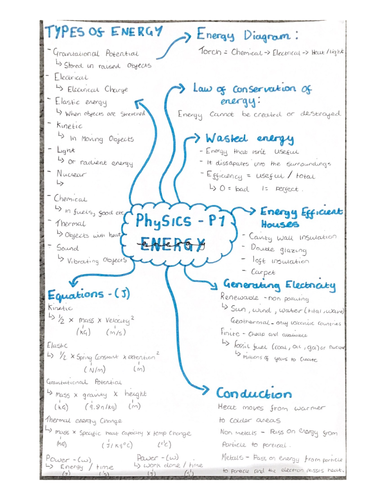 TYPES OF ENERGY
- Gravitational Potential
↳ Stored in raised Objects
- Electrical
↳ Electrical Charge
- Elastic energy
↳ When objects are stretched
- Kinetic
↳ In Moving Objects
- Light
↳ Or radiant energy
- Nuclear
↳
- Chemical
↳ in fuels, food etc
- Thermal
↳ Objects with heat
- Sound
↳ Vibrating Objects
Energy Diagram:
Torch = Chemical → Electrical → Heat/Light
Law of Conservation of
energy:
Energy Cannot be created or destroyed
Wasted energy
- Energy that isn't useful
- It dissipates into the surroundings
- Efficiency = useful / total
↳ 0 = bad 1 = perfect
PHYSICS - P1
ENERGY
Energy Efficient
Houses
- Cavity wall insulation
- Double glazing
- loft insulation
- Carpet
Generating Electricity
Renewable - non polluting
↳ Sun, wind, water (tidal, wave)
Geothermal
Finite
↳ fossil fuels (coal, oil, gas) or nuclear
↳ millions of years to create
Conduction
Heat moves from warmer
to cooler areas
Non metals - Pass on energy from
Particle to particle.
Metals - Pass on energy from particle
to particle and the electrons
Equations - (J)
Kinetic
↳ ½ × mass × velocity²
(kg) (m/s)
Elastic
↳ ½ × Spring Constant × extension²
(N/m) (m)
Gravitational Potential
↳ mass × gravity × height
(kg) (9.8N/kg) (m)
Thermal energy Change
↳ mass × Specific heat Capacity × temp Change
(kg) (J/kg°C) (°C)
Power - (w)
↳ Energy / time
(J) (s)
Power - (w)
↳ work done / time
(J) (s)